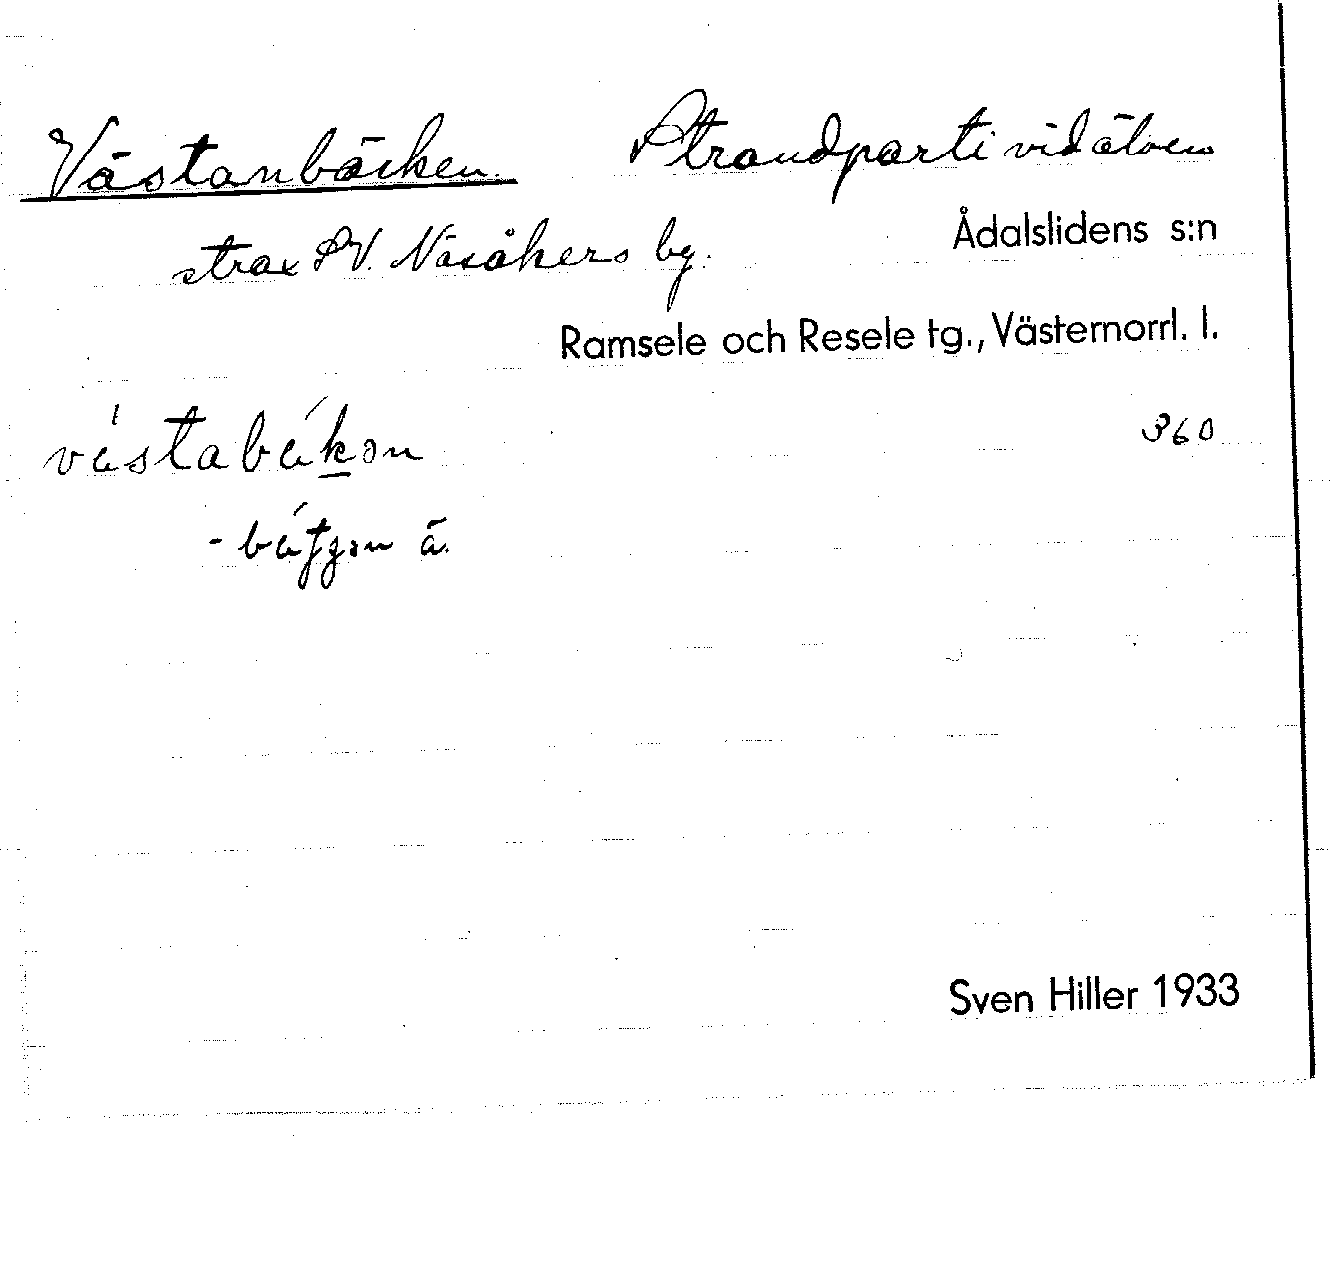 Västanbäcken. Strandparti vid älven
strax SV. Näsåkers by.
Ådalslidens s:n
Ramsele och Resele tg., Västernorrl. l.
360
ä.
Sven Hiller 1933